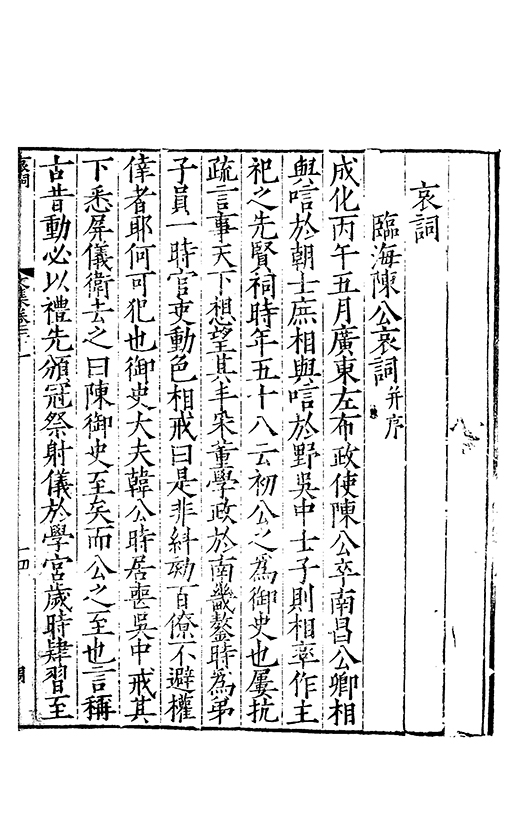 哀詞
臨海陳公哀詞并序
成化丙午五月廣東左布政使陳公卒南昌公卿相
與唁於朝士庶相與唁於野吳中士子則相率作主
祀之先賢祠時年五十八云初公之為御史也屢抗
疏言事天下想望其丰采董學政於南畿鏊時為弟
子員一時官吏動色相戒曰是非糾劾百僚不避權
倖者耶何可犯也御史大夫韓公時居喪吳中戒其
下悉屏儀衛去之曰陳御史至矣而公之至也言稱
古昔動必以禮先頒冠祭射儀於學宮歲時肄習至
哀詞
文集卷三十一
一四